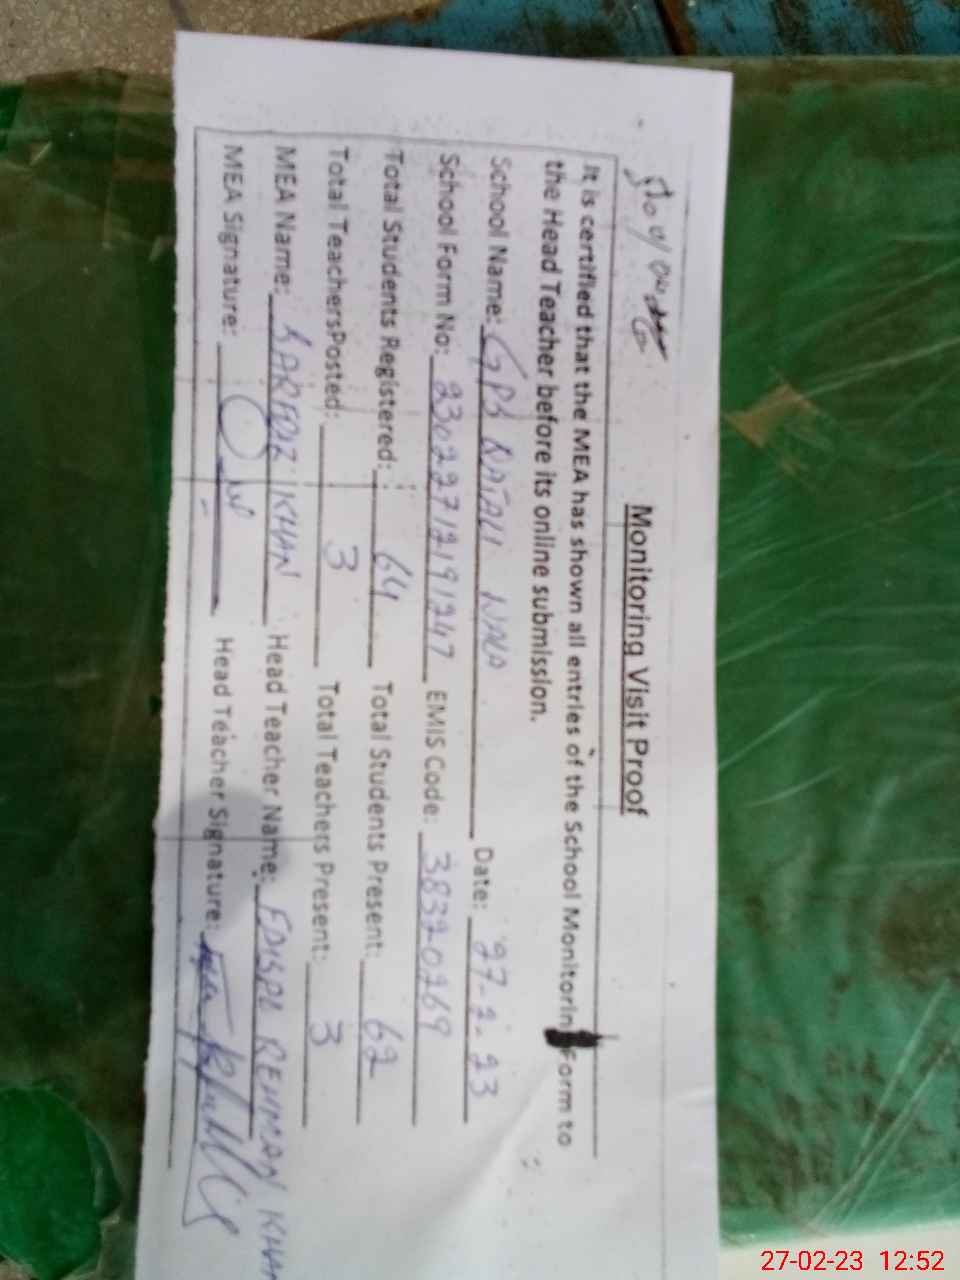 Monitoring Visit Proof
It is certified that the MEA has shown all entries of the School Monitorin Form to
the Head Teacher before its online submission.
School Name: GPS Date: 27-2-23
School Form No: 23022712191247 EMIS Code: 38320269
Total Students Registered: 64 Total Students Present: 62
Total TeachersPosted: 3 Total Teachers Present: 3
MEA Name: KHAN Head Teacher Name: REHMAN KHAN
MEA Signature: Head Teacher Signature:
27-02-23 12:52